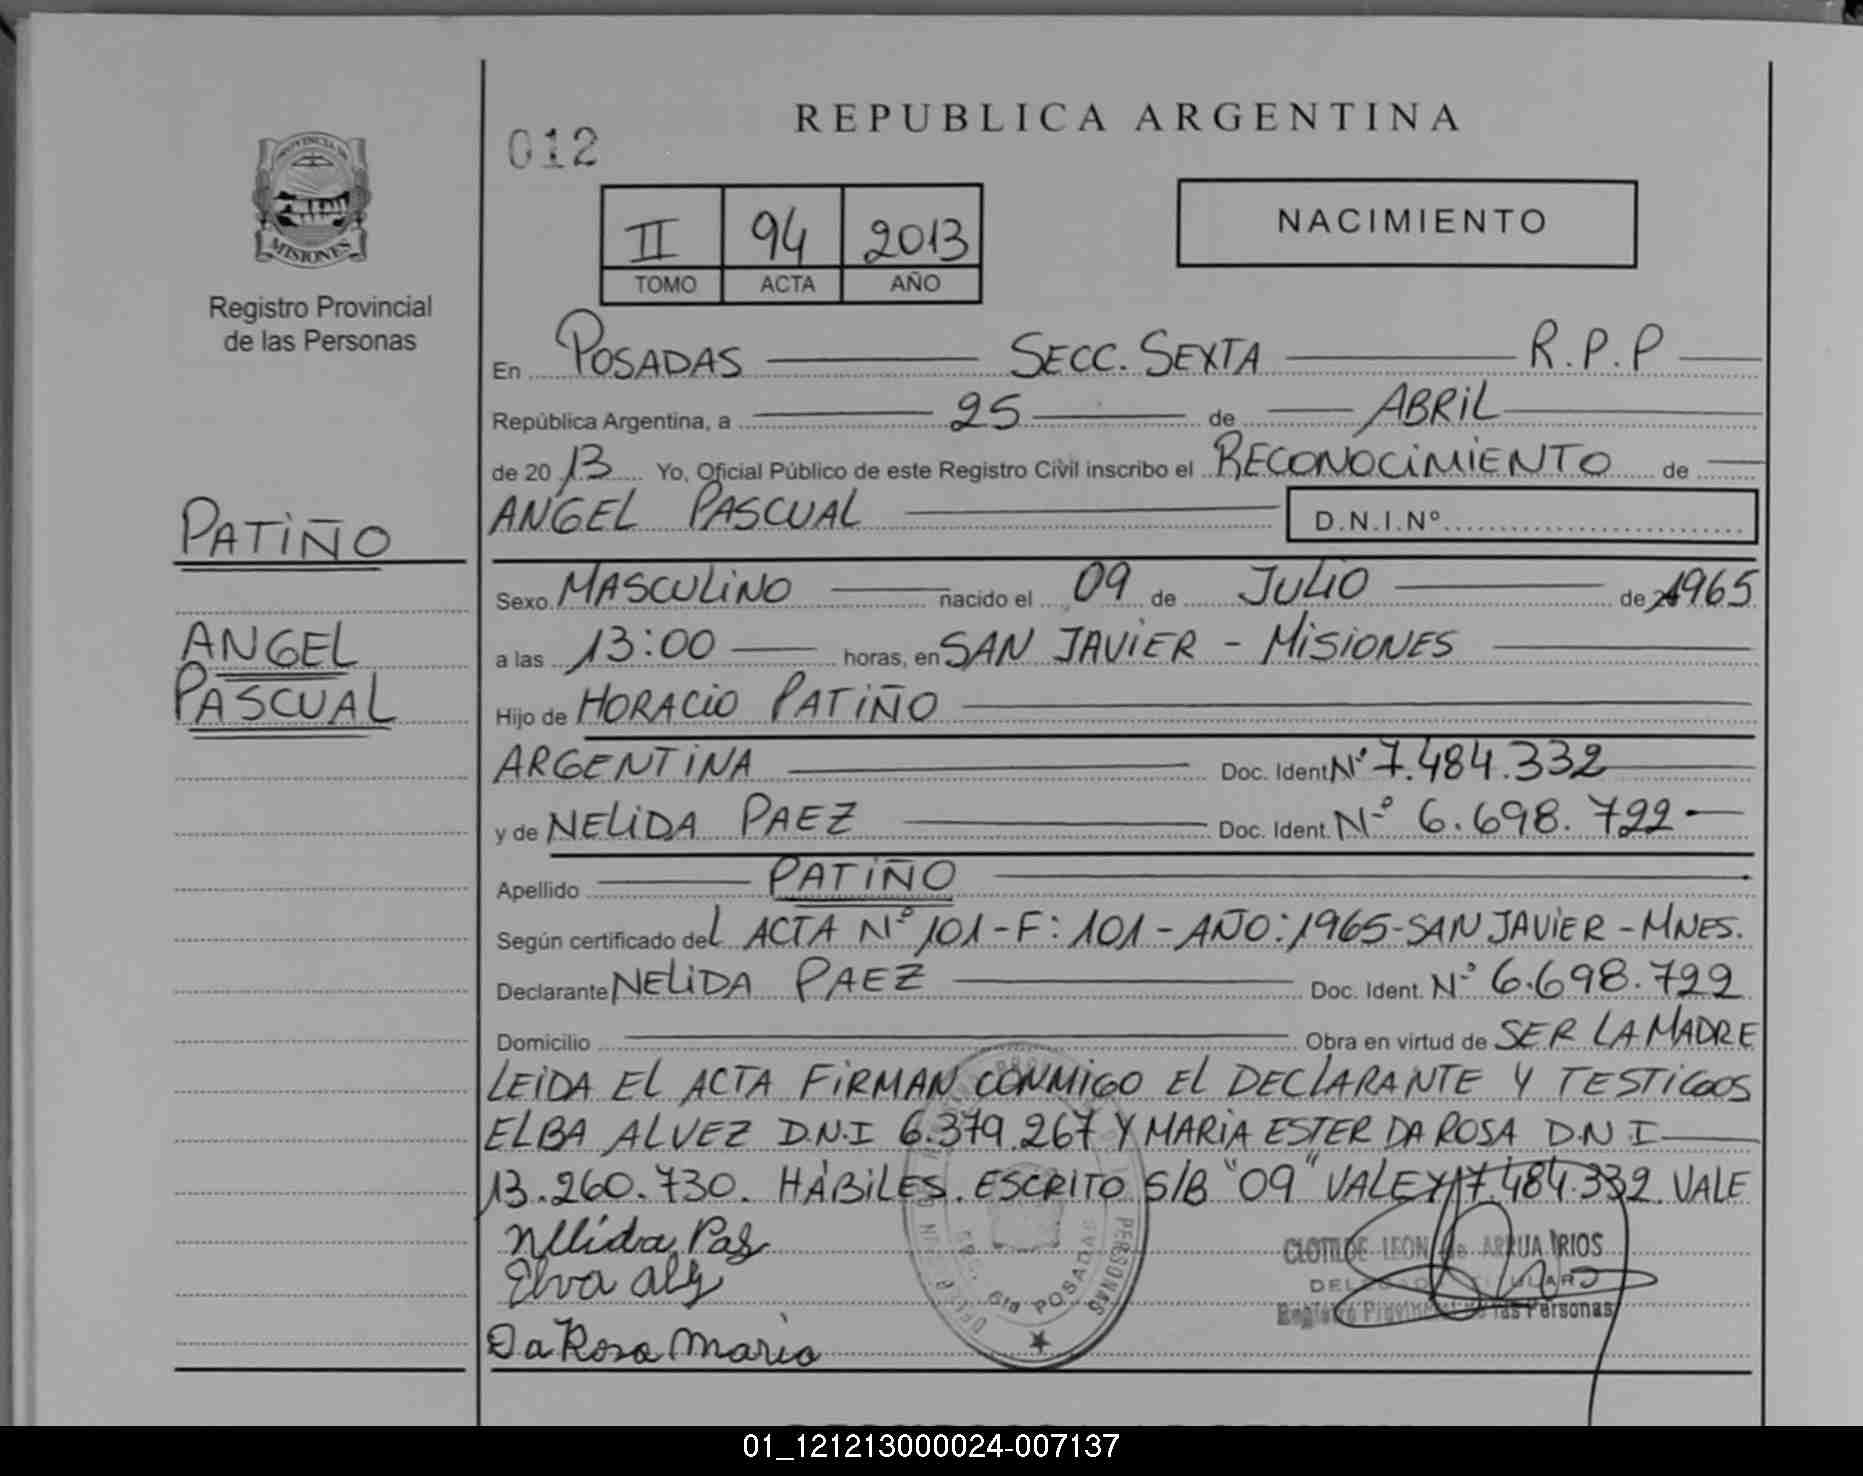 REPUBLICA ARGENTINA
012
PROVINCIA DE
MISIONES
Registro Provincial
de las Personas
II 94 2013
TOMO ACTA AÑO
NACIMIENTO
En POSADAS SECC. SEXTA R.P.P
República Argentina, a 25 de ABRIL
de 2013 Yo, Oficial Público de este Registro Civil inscribo el RECONOCIMIENTO de
ANGEL PASCUAL D.N.I.Nº
PATIÑO
ANGEL
PASCUAL
Sexo MASCULINO nacido el 09 de JULIO de 1965
a las 13:00 horas, en SAN JAVIER - MISIONES
Hijo de HORACIO PATIÑO
ARGENTINA Doc. Ident Nº 7.484.332
y de NELIDA PAEZ Doc. Ident. Nº 6.698.722
Apellido PATIÑO
Según certificado del ACTA Nº 101-F: 101-AÑO: 1965-SAN JAVIER - MNES.
Declarante NELIDA PAEZ Doc. Ident. Nº 6.698.722
Domicilio Obra en virtud de SER LA MADRE
LEIDA EL ACTA FIRMAN CONMIGO EL DECLARANTE Y TESTIGOS
ELBA ALVEZ D.N.I 6.379.267 Y MARIA ESTER DA ROSA D.N I
13.260.730. HÁBILES. ESCRITO S/B "09" VALE Y 7.484.332. VALE
Nélida Paz
Elva
Da Rosa Maria
6ta POSADAS
PERSONAS
CLOTILDE LEON de ARRUA RIOS
TITULAR
Registro Provincial de las Personas
01_121213000024-007137